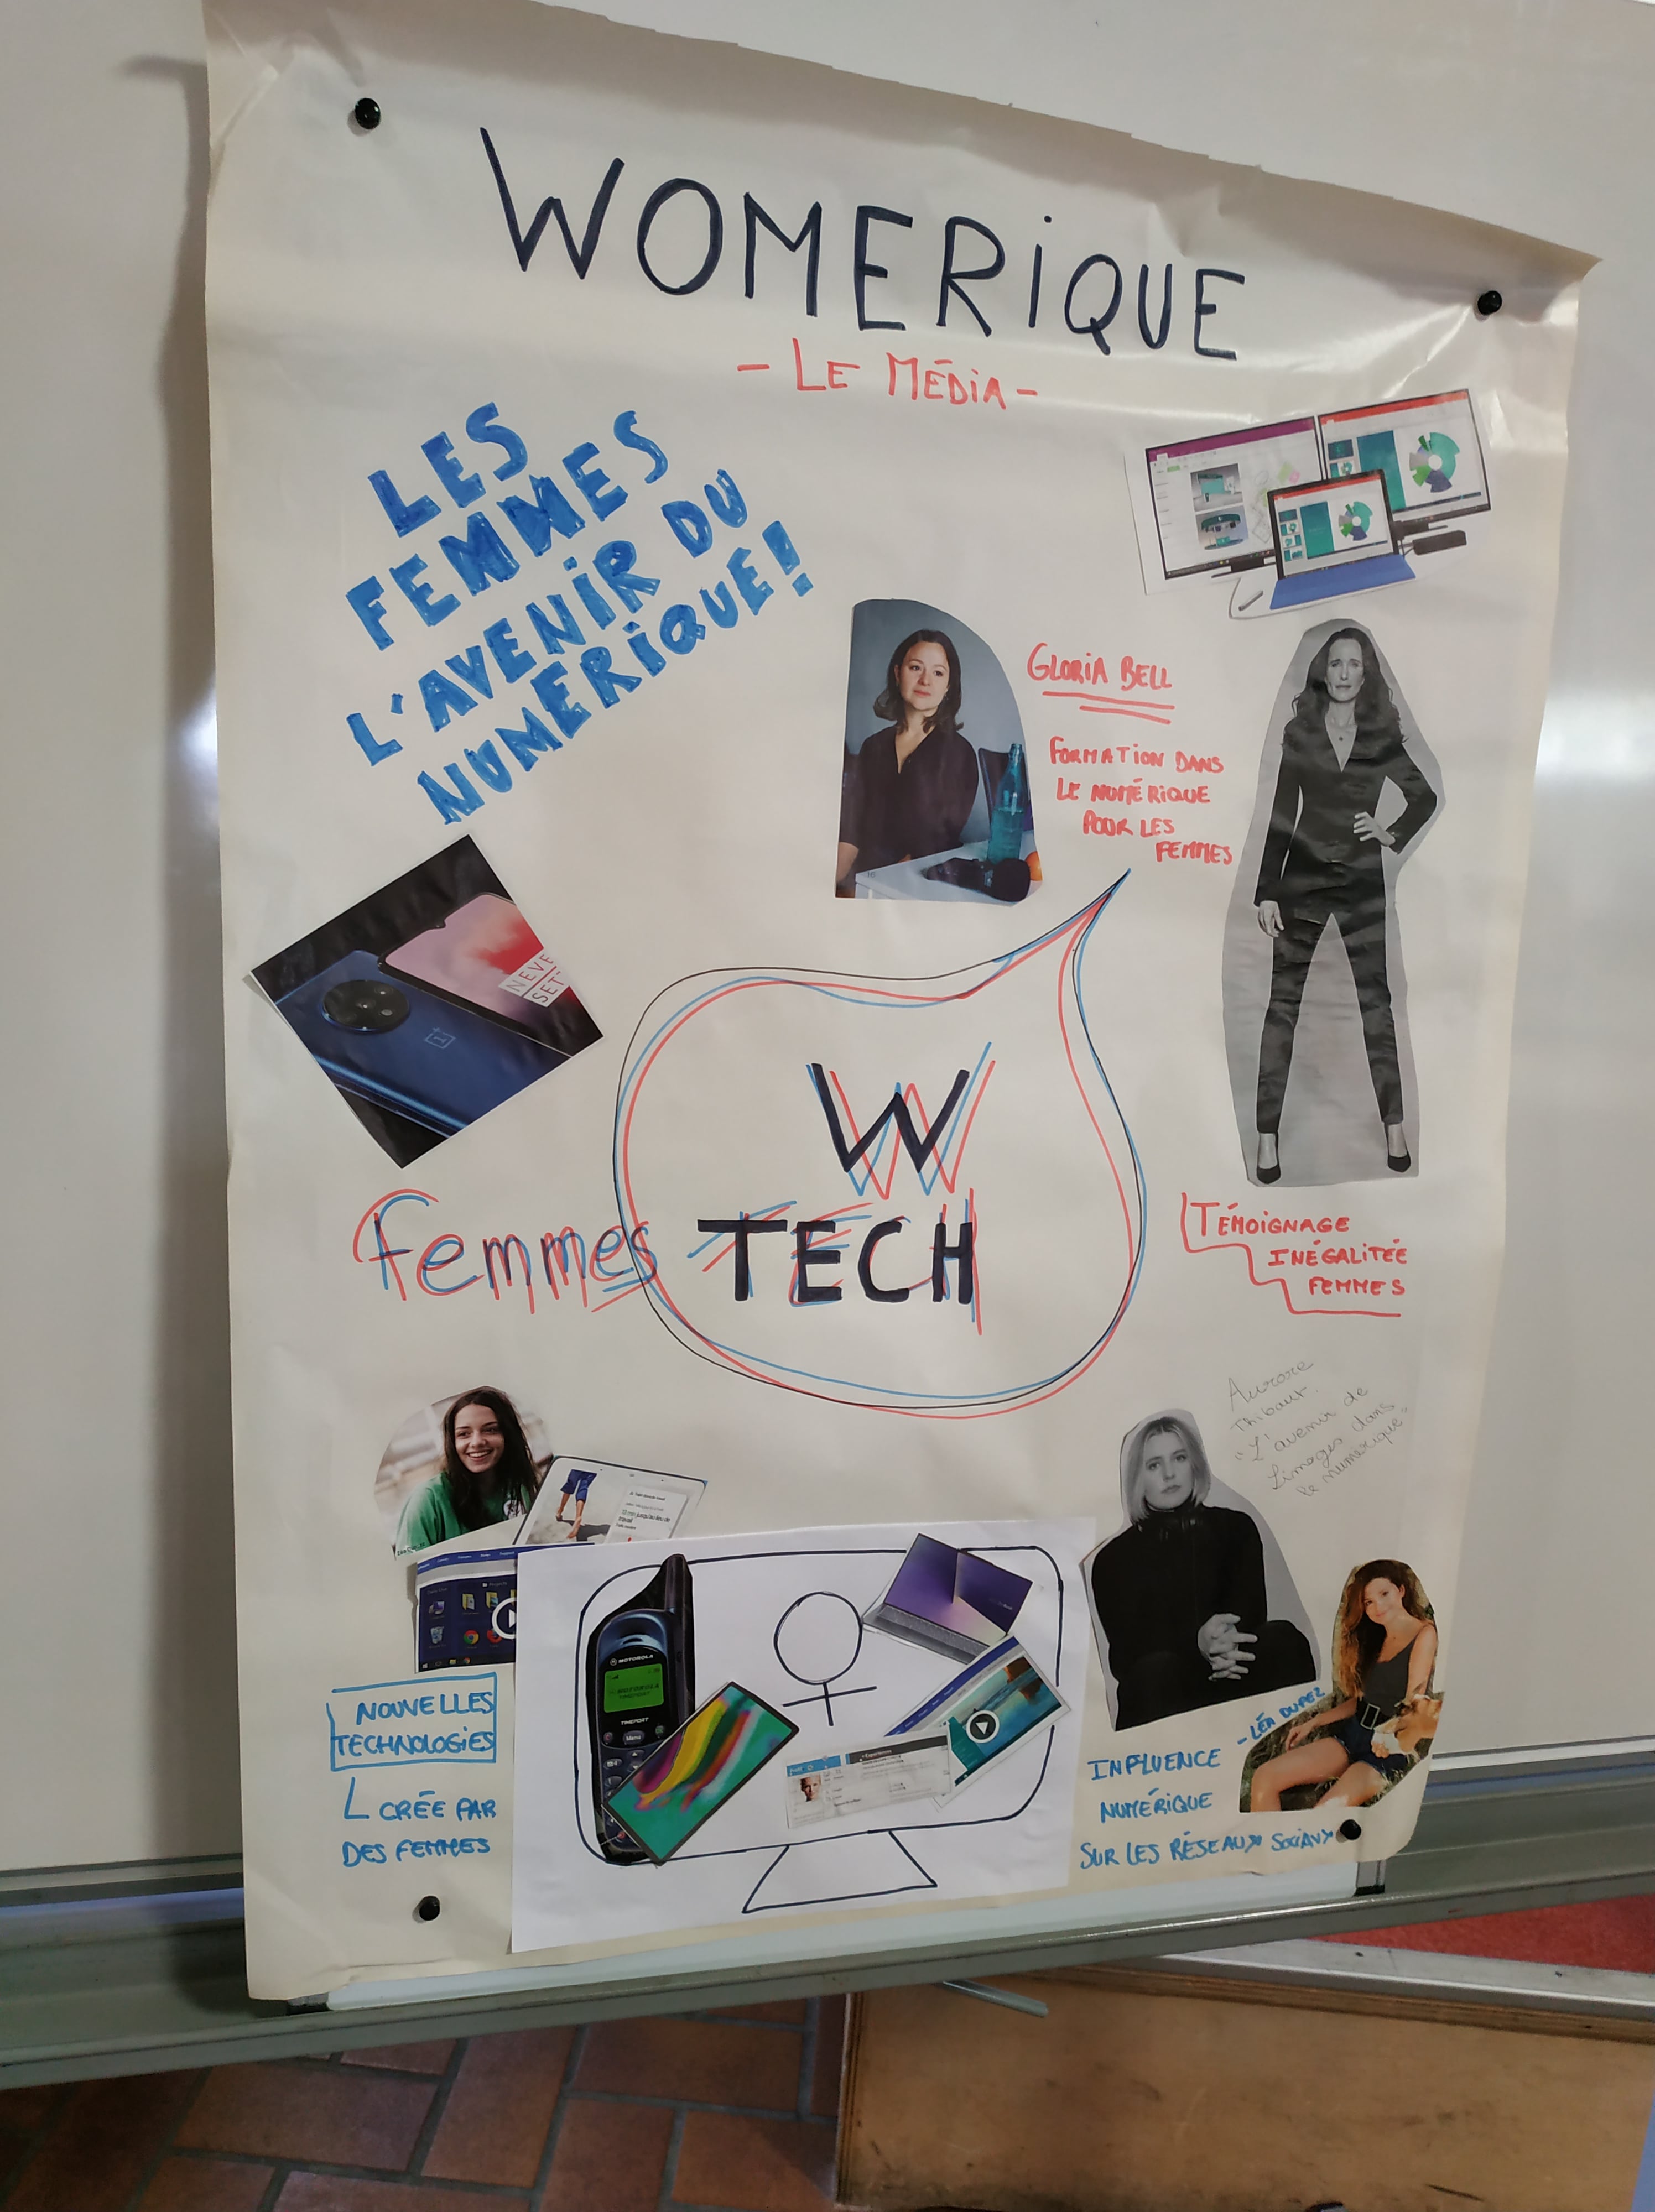 WOMERIQUE
- LE MÉDIA -
LES
FEMMES
L'AVENIR DU
NUMERIQUE!
GLORIA BELL
FORMATION DANS
LE NUMÉRIQUE
POUR LES
FEMMES
NEVE
SET
W
femmes TECH
TÉMOIGNAGE
INÉGALITÉE
FEMMES
Aurore
Thibaut.
"L'avenir de
Limoges dans
le numerique"
MOTOROLA
TIMEPORT
Menu
NOUVELLES
TECHNOLOGIES
CRÉE PAR
DES FEMMES
- LÉA DUPEZ
INFLUENCE
NUMÉRIQUE
SUR LES RÉSEAUX SOCIAUX